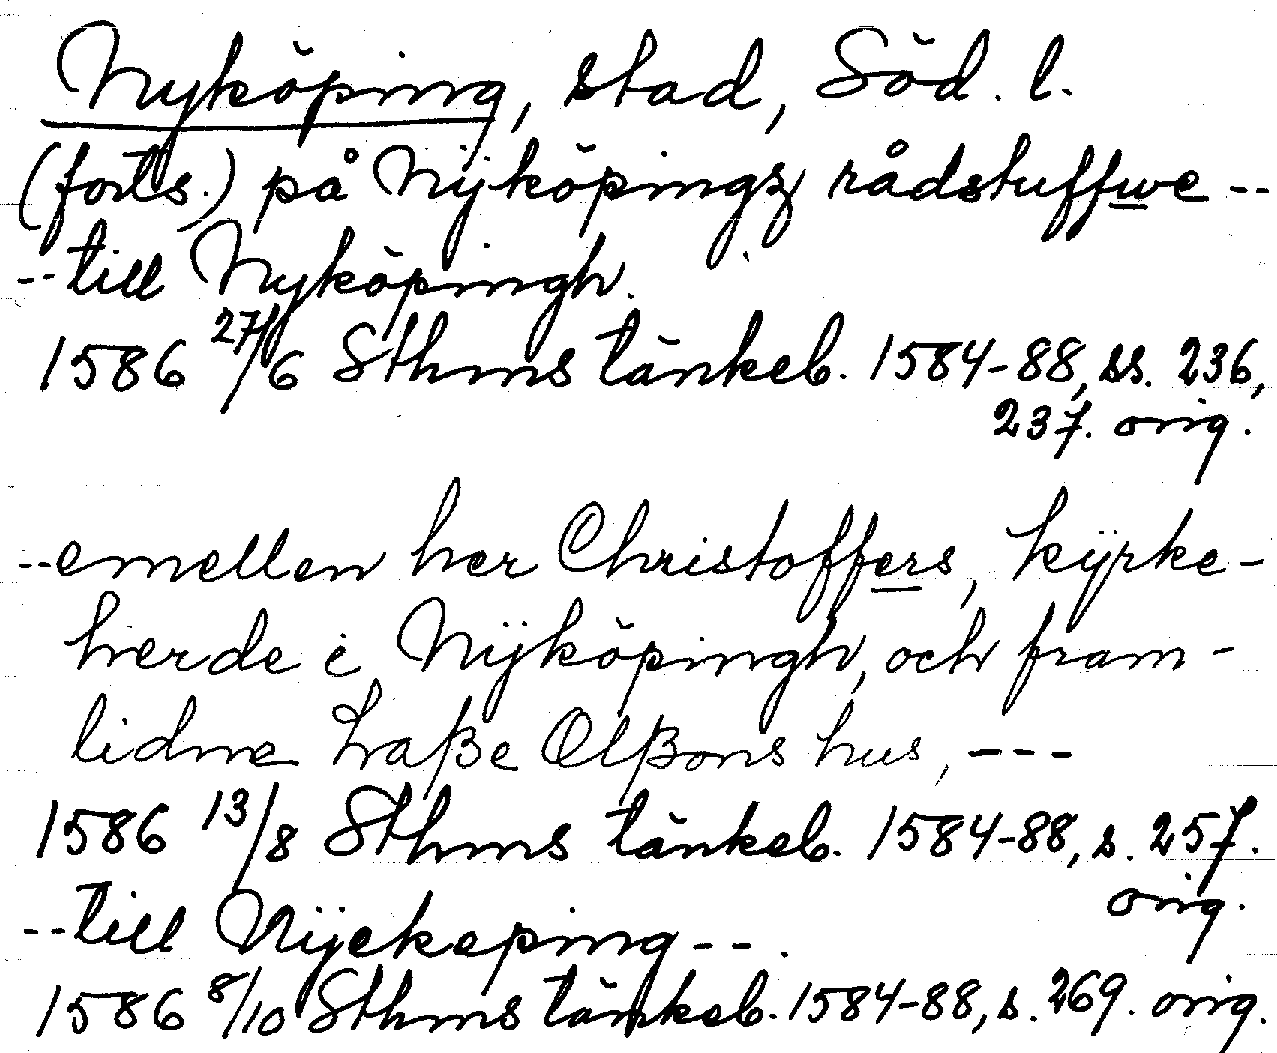 Nyköping, stad, Söd. l.
(forts.) på Nÿköpingz rådstuffwe --
-- till Nyköpingh.
1586 27/6 Sthms tänkeb. 1584-88, ss. 236,
237. orig.
-- emellen her Christoffers, kÿrke-
herde i Nÿköpingh, och fram-
lidne Laße Olßons hus, ---
1586 13/8 Sthms tänkeb. 1584-88, s. 257.
orig.
-- till Nÿekeping --.
1586 8/10 Sthms tänkeb. 1584-88, s. 269. orig.